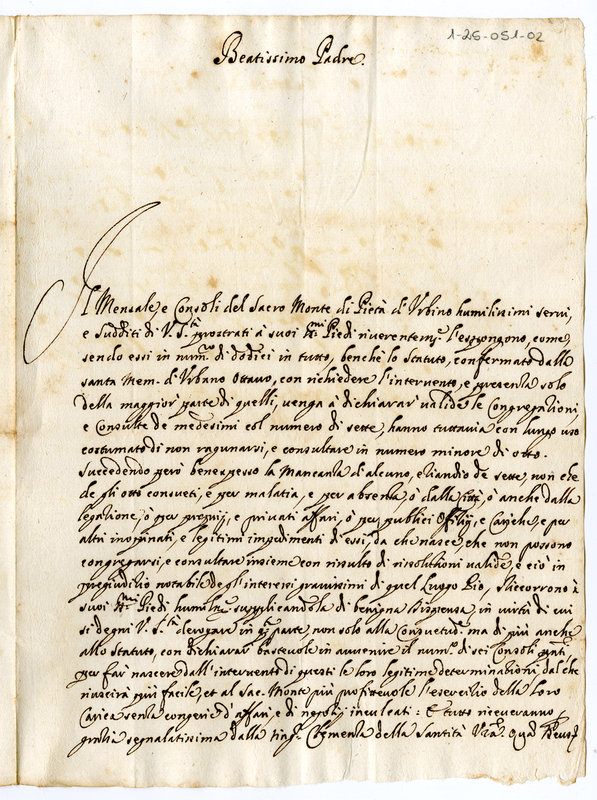 1-26-051-02
Beatissimo Padre.
Il Mensale, e Consoli del Sacro Monte di Pietà d'Urbino humilissimi servi,
e sudditi di V. S.tà prostrati à suoi S.mi Piedi riverentem.e l'espongono, come
sendo essi in num.o di dodeci in tutto, benche lo Statuto, confermato dalla
santa Mem. d'Urbano Ottavo, con richiedere l'intervento, e presenza solo
della maggior parte di quelli, venga à dichiarar valide le Congregationi,
e Consulte de medesimi col numero di sette, hanno tuttavia con lungo uso
costumato di non ragunarsi, e consultare in numero minore di otto.
Succedendo però bene spesso la Mancanza d'alcuno, etiandio de sette, non che
de gli otto consueti, e per malatia, e per absenza, ò dalla Città, ò anche dalla
legatione, ò per proprij, e privati affari, ò per publici Offitij, e Cariche, e per
altri inopinati, e legitimi impedimenti di essi, da che nasce, che non possono
congregarsi, e consultare insieme con risulto di risolutioni valide, e ciò in
pregiuditio notabile degl'interessi gravissimi di quel Luogo Pio, Ricorrono à
suoi S.mi Piedi humilm.e supplicandola di benigna Dispensa, in virtù di cui
si degni V. S.tà derogare in q.a parte, non solo alla Consuetud.e ma di più anche
allo Statuto, con dichiarar bastevole in avvenire il num.o di sei Consoli
per far nascere dall'intervento di questi le loro legitime determinationi, dal che
riuscirà più facile, et al Sac. Monte più profittevole l'esercitio della loro
Carica senza congerie d'affari, e di negotij inculcati: E tutto riceveranno
gratia segnalatissima dalla Clemenza della Santità V.ra Quam Deus